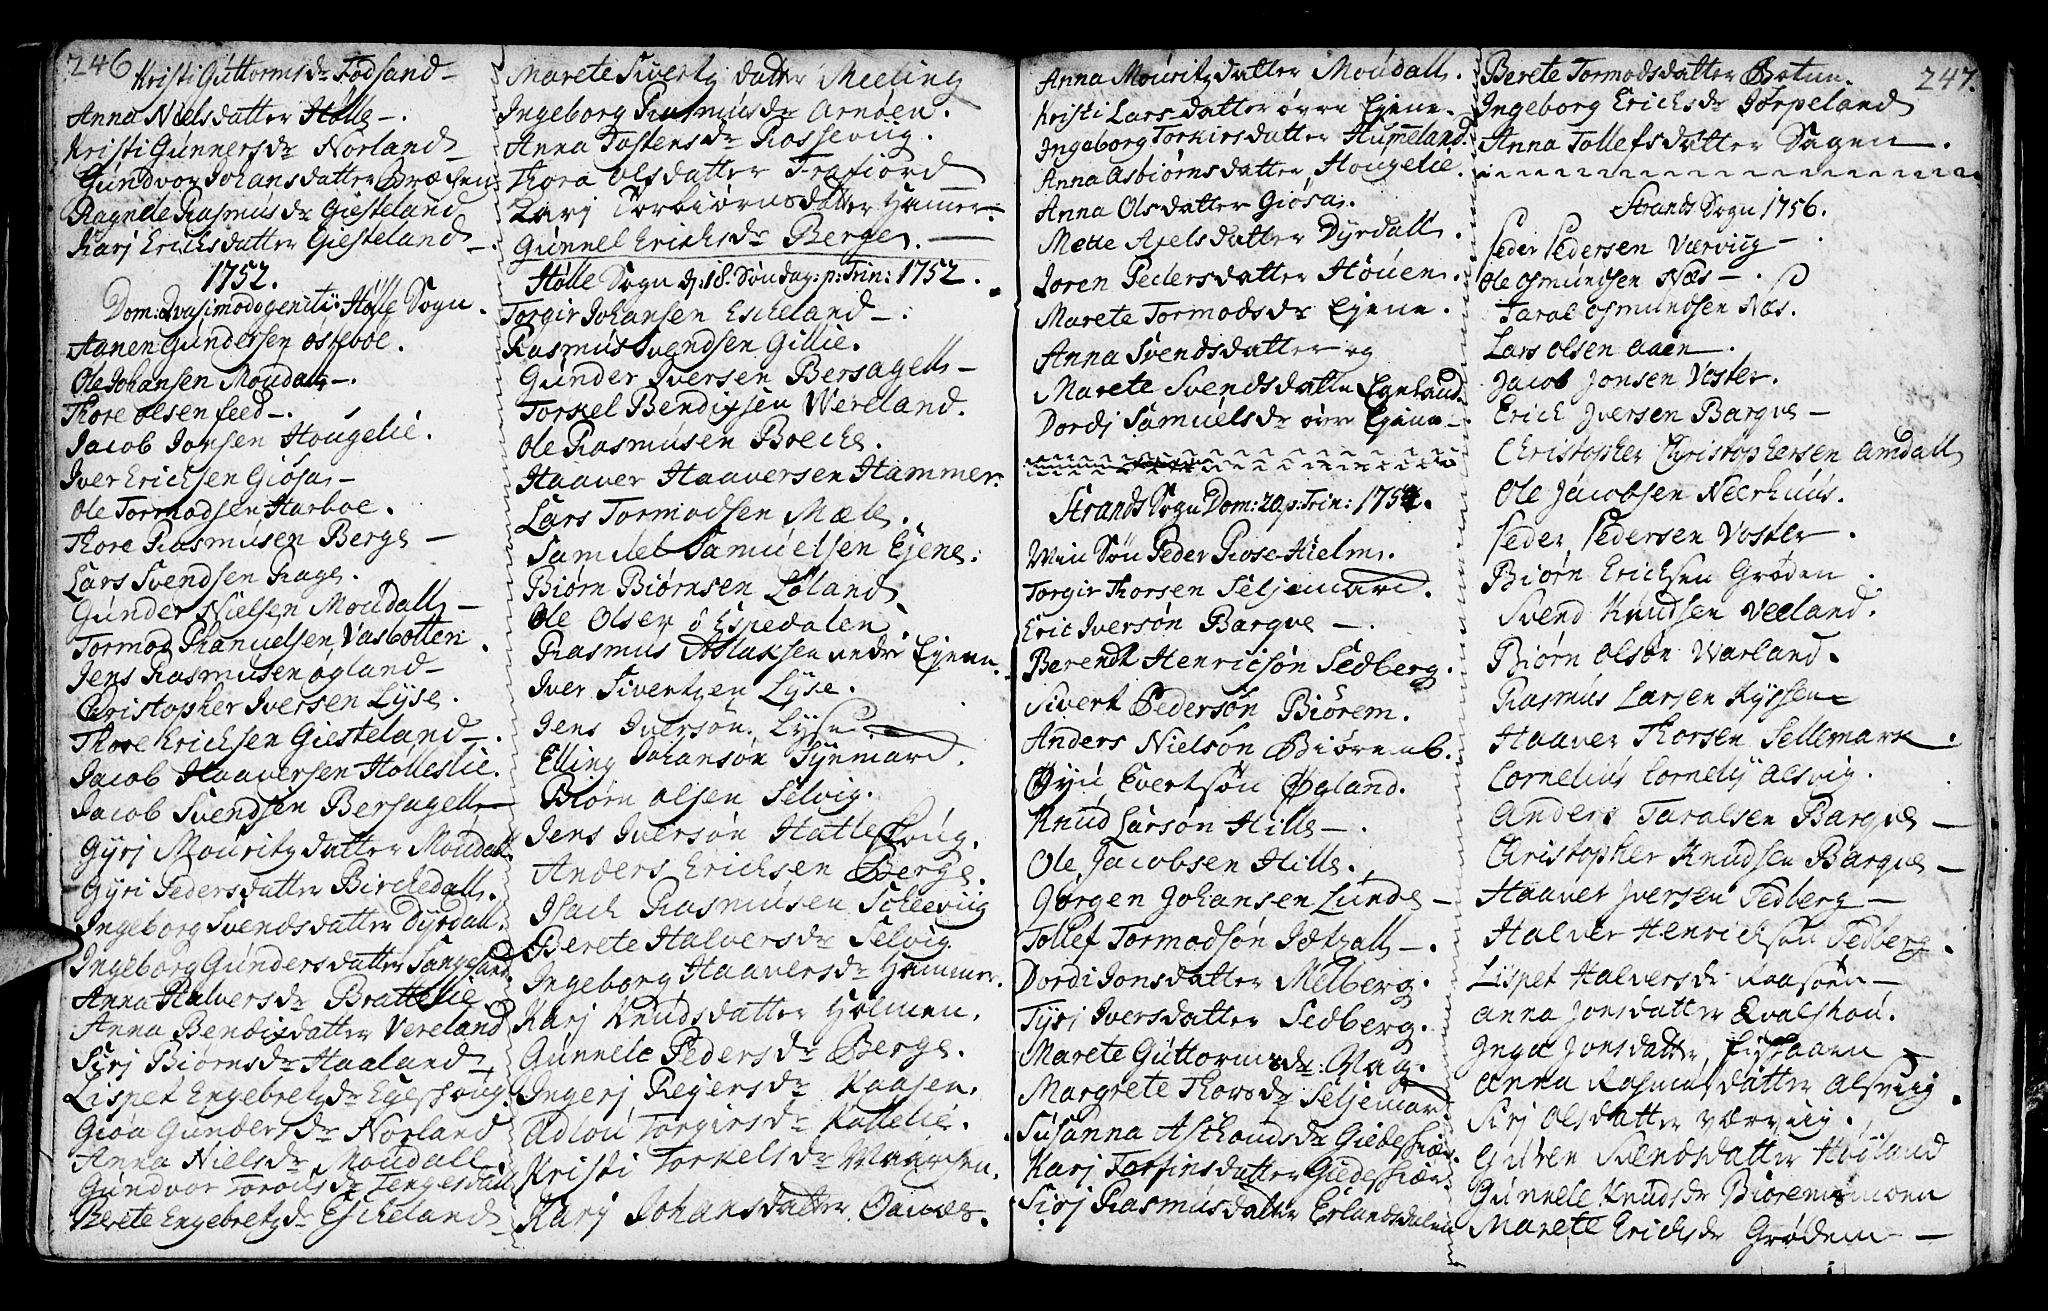 246
Kristi Guttormsdr Fodsand
Anna Nielsdatter Hølle
Kristi Gunnersdr Norland
Gundvor Johansdatter Bræken
Ragnele Rasmusdr Giesteland
Karj Ericksdatter Giesteland
1752.
Dom: Qvasimodogeniti Hølle Sogn.
Aanen Gundersen Osteboe.
Ole Johansen Moudall.
Thore Olsen Leed.
Jacob Jonsen Hougelie.
Iver Ericksen Giøsa
Ole Tormodsen Harboe.
Thore Rasmusen Berge
Lars Svendsen Rage.
Gunder Nielsen Moudall
Tormod Phanuelsen Vasbotten.
Jens Rasmusen Ogland
Christopher Iversen Lyse.
Thore Ericksen Giesteland.
Jacob Haaversen Holleslie.
Jacob Svendsen Bersagell
Gyrj Mouritzdatter Moudall.
Gyri Pedersdatter Birchedall.
Ingeborg Svendsdatter Dyrdall.
Ingeborg Gundersdatter
Anna Halversdr Brattelie
Anna Bendixdatter Vereland
Sirj Biørnsdr Haaland
Lispet Engebretzdr Egeschoug.
Gioa Gundersdr Norland
Anna Nielsdr Moudall
Gundvor dr Tengesdall
Berete Engebretzdr Escheland
Marete Sivertz datter Meeling
Ingeborg Rasmusdr Arnøen.
Anna Tostensdr Rossevug.
Thora Olsdatter Frafiord
Karj Torbiørnsdatter Hamer.
Gunnel Ericksdr Berge.
Hølle Sogn d: 18. Søndag: p: Trin: 1752.
Torgir Johansen Escheland.
Rasmus Svendsen Gillie.
Gunder Iversen Bersagell
Torkel Bendixsen Wereland.
Ole Rasmusen Boeche.
Haaver Haaversen Hammer.
Lars Tormodsen Mæle.
Samuel Samuelsen Ejene.
Biørn Biørnsen Løland.
Ole Olsen ø Espedalen.
Rasmus Aslaksen nedre Ejene.
Iver Sivertzen Lyse.
Jens Iversøn Lyse
Elling Johansøn Tynmarc.
Biørn Olsen Selvig.
Jens Iversøn Hatleskoug.
Anders Ericksen Berge.
Isach Rasmusen Scheeviig
Berete Halversdr Selvig
Ingeborg Haaversdr Hammer.
Karj Knudsdatter Holmen.
Gunnele Pedersdr Berge.
Ingerj Rejersdr Kaasen.
Adlou Torgirsdr Kallelie.
Kristi Torkelsdr
Karj Johansdatter
Anna Mouritzdatter Moudall.
Kristi Larsdatter øvre Ejene.
Ingeborg Torkirsdatter Humeland.
Anna Asbiørnsdatter Hougelie.
Anna Olsdatter Giøsa.
Mette Axelsdatter Dyrdall.
Joren Pedersdatter Høuen.
Marete Tormodsdr Ejene.
Anna Svendsdatter og
Marete Svendsdatter Egeland.
Dordj Samuelsdr øvre Ejene.
Strands Sogn Dom: 20 p: Trin: 1754.
Min Søn Peder Rosa Hielm.
Torgir Thorsen Seljemarc.
Eric Iversøn Bargve.
Berendt Henricsøn Sedberg.
Sivert Pedersøn Biørem.
Anders Nielsøn Biørem.
Øyu Evertsøn Øgland.
Knud Larsøn Hille.
Ole Jacobsen Hille.
Jørgen Johansen Lunde
Tollef Tormodsøn Idtzall.
Dordi Jonsdatter Melberg.
Tyri Iversdatter Sedberg.
Marete Guttormsdr Vag.
Margrete Thorsdr Seljemarc
Susanna Aschoudsdr Giedeschier.
Karj Torfinsdatter Giedeschier.
Sirj Rasmusdatter Erlandsdalen
247.
Berete Tormodsdatter Botun.
Ingeborg Ericksdr Jørpeland
Anna Tollefsdatter Sagen.
Strands Sogn 1756.
Peder Pedersen Værviig
Ole Osmundsen Næs.
Taral Osmundsen Næs.
Lars Olsen Aaen.
Jacob Jonsen Voster.
Erick Iversen Bargve
Christopher Christophersen Amdall
Ole Jacobsen Neerhuus.
Peder Pedersen Voster.
Biørn Ericksen Grøden.
Svend Knudsen Veeland.
Biørn Olsøn Warland.
Rasmus Larsen Ryssen
Haaver Thorsen Sellemark.
Cornelius Cornelij Alsvig.
Anders Taralsen Bargve
Christopher Knudsen Bargve
Haaver Iversen Sedberg
Halver Henricksøn Sedberg.
Lispet Halversdr Raasøen
Anna Jonsdatter Qvalshou.
Inga Jonsdatter Fischaaen
Anna Rasmusdatter Alsviig.
Sirj Olsdatter Værviig.
Guren Svendsdatter Høyland
Gunnele Knudsdr Bioremsmoen
Marete Ericksdr Grøden